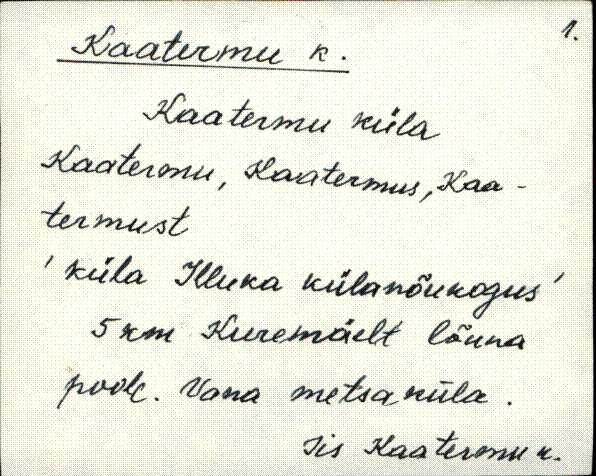 1.
Kaatermu k.
Kaatermu küla
Kaatermu, Kaatermus, Kaa-
termust
'küla Illuka külanõukogus'
5 km Kuremäelt lõuna
poole. Vana metsaküla.
Iis Kaatermu k.